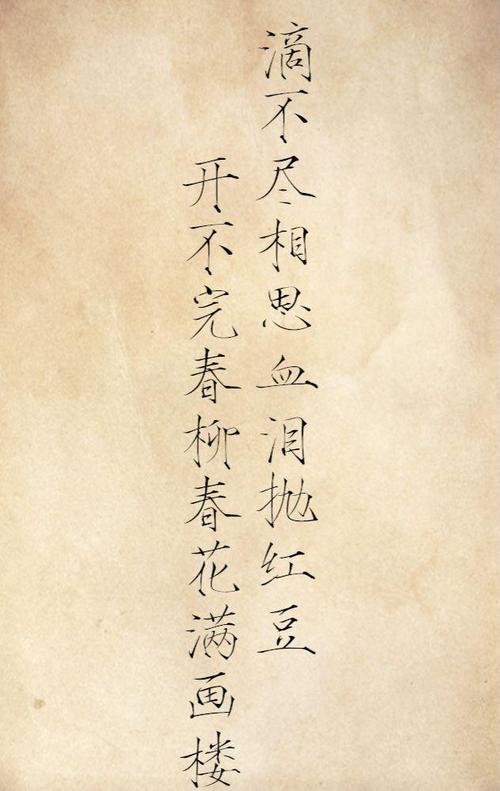 滴不尽相思血泪抛红豆
开不完春柳春花满画楼